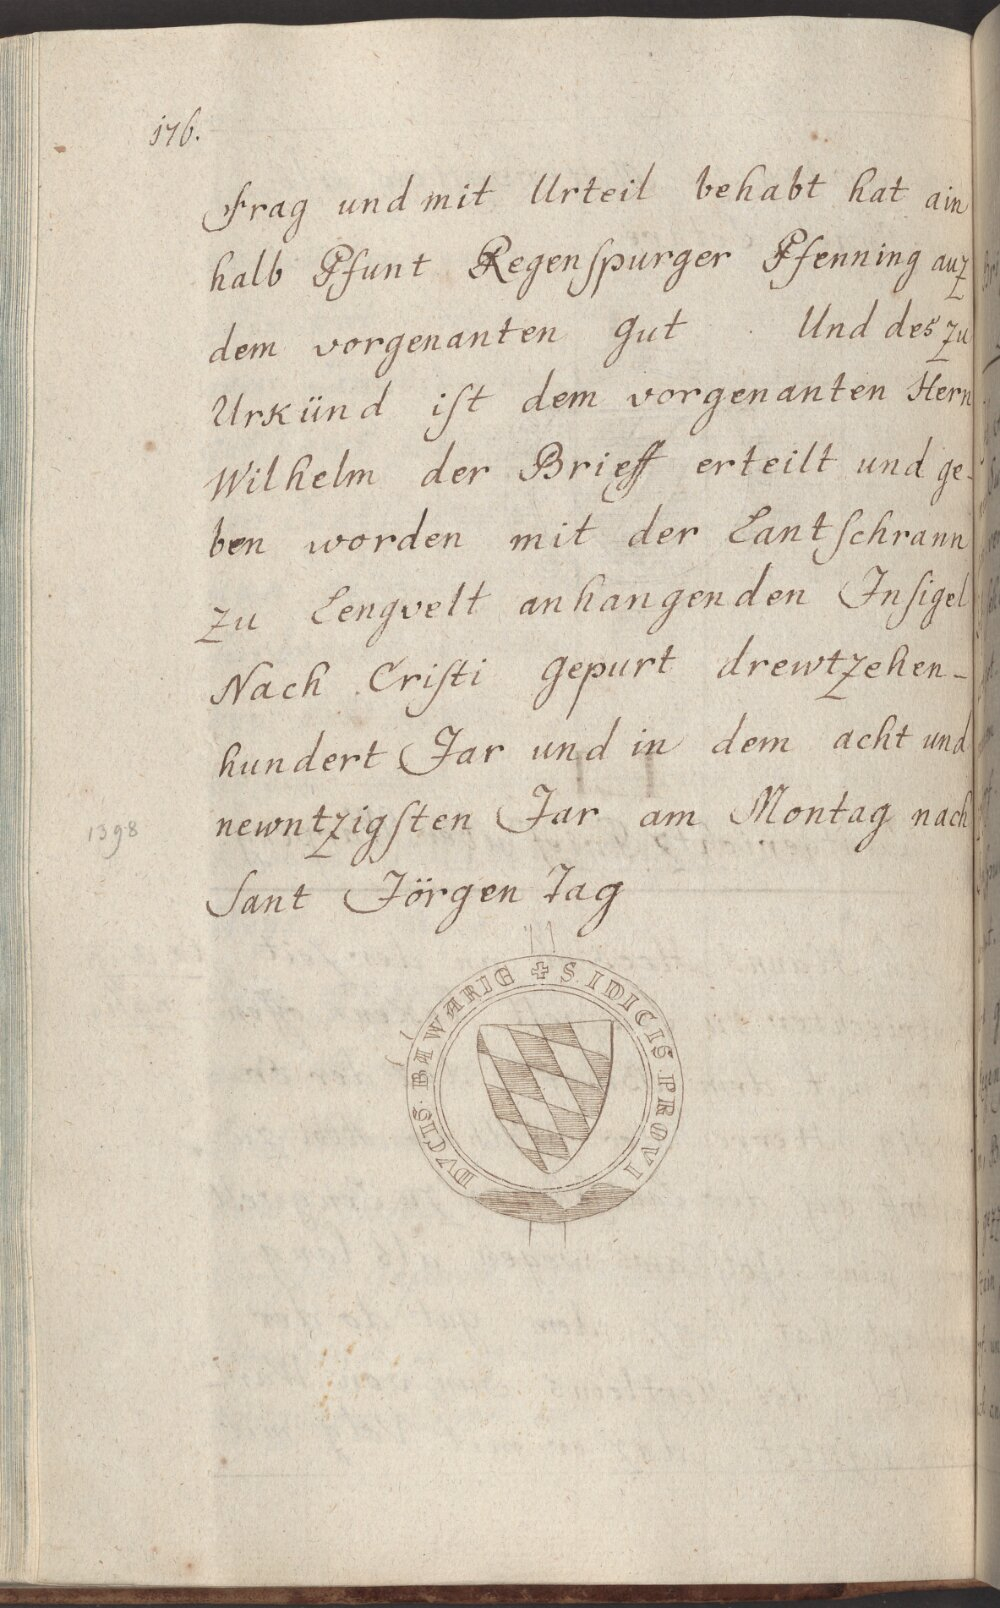 176.
Frag und mit Urteil behabt hat ain
halb Pfunt Regenſpurger Pfenning auz
dem vorgenanten gut . Und des zu
Urkünd iſt dem vorgenanten Hern
Wilhelm der Brieff erteilt und ge-
ben worden mit der Lantſchrann
zu Lengvelt anhangenden Inſigel
Nach Criſti gepurt drewtzehen-
hundert Jar und in dem acht und
newntzigſten Jar am Montag nach
Sant Jörgen Tag
1398
✠ S. IDICIS PROVI
DVCIS · BAWARIE